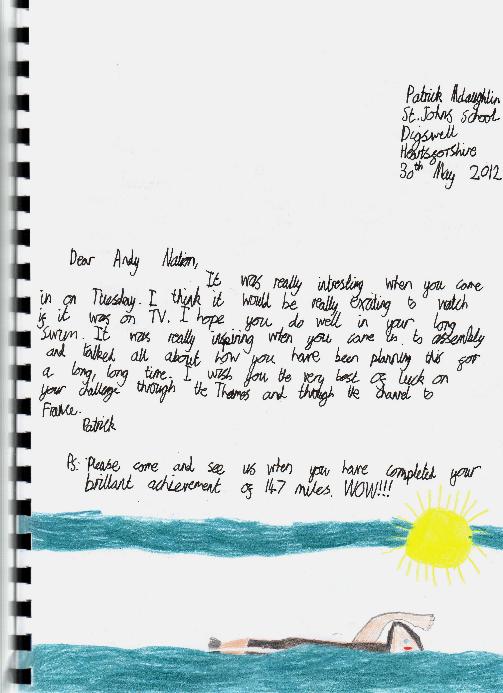 Patrick Mclaughlin
St. Johns School
Digswell
Heartsforshire
30th May 2012
Dear Andy Nation,
It was really intresting when you came
in on Tuesday. I think it would be really exciting to watch
if it was on TV. I hope you do well in your long
swum. It was really inspiring when you came in to assembely
and talked all about how you have been planning this for
a long, long time. I wish you the very best of luck on
your challenge through the Thames and through the channel to
France.
Patrick
Ps: please come and see us when you have completed your
brillant achievement of 147 miles. WOW!!!